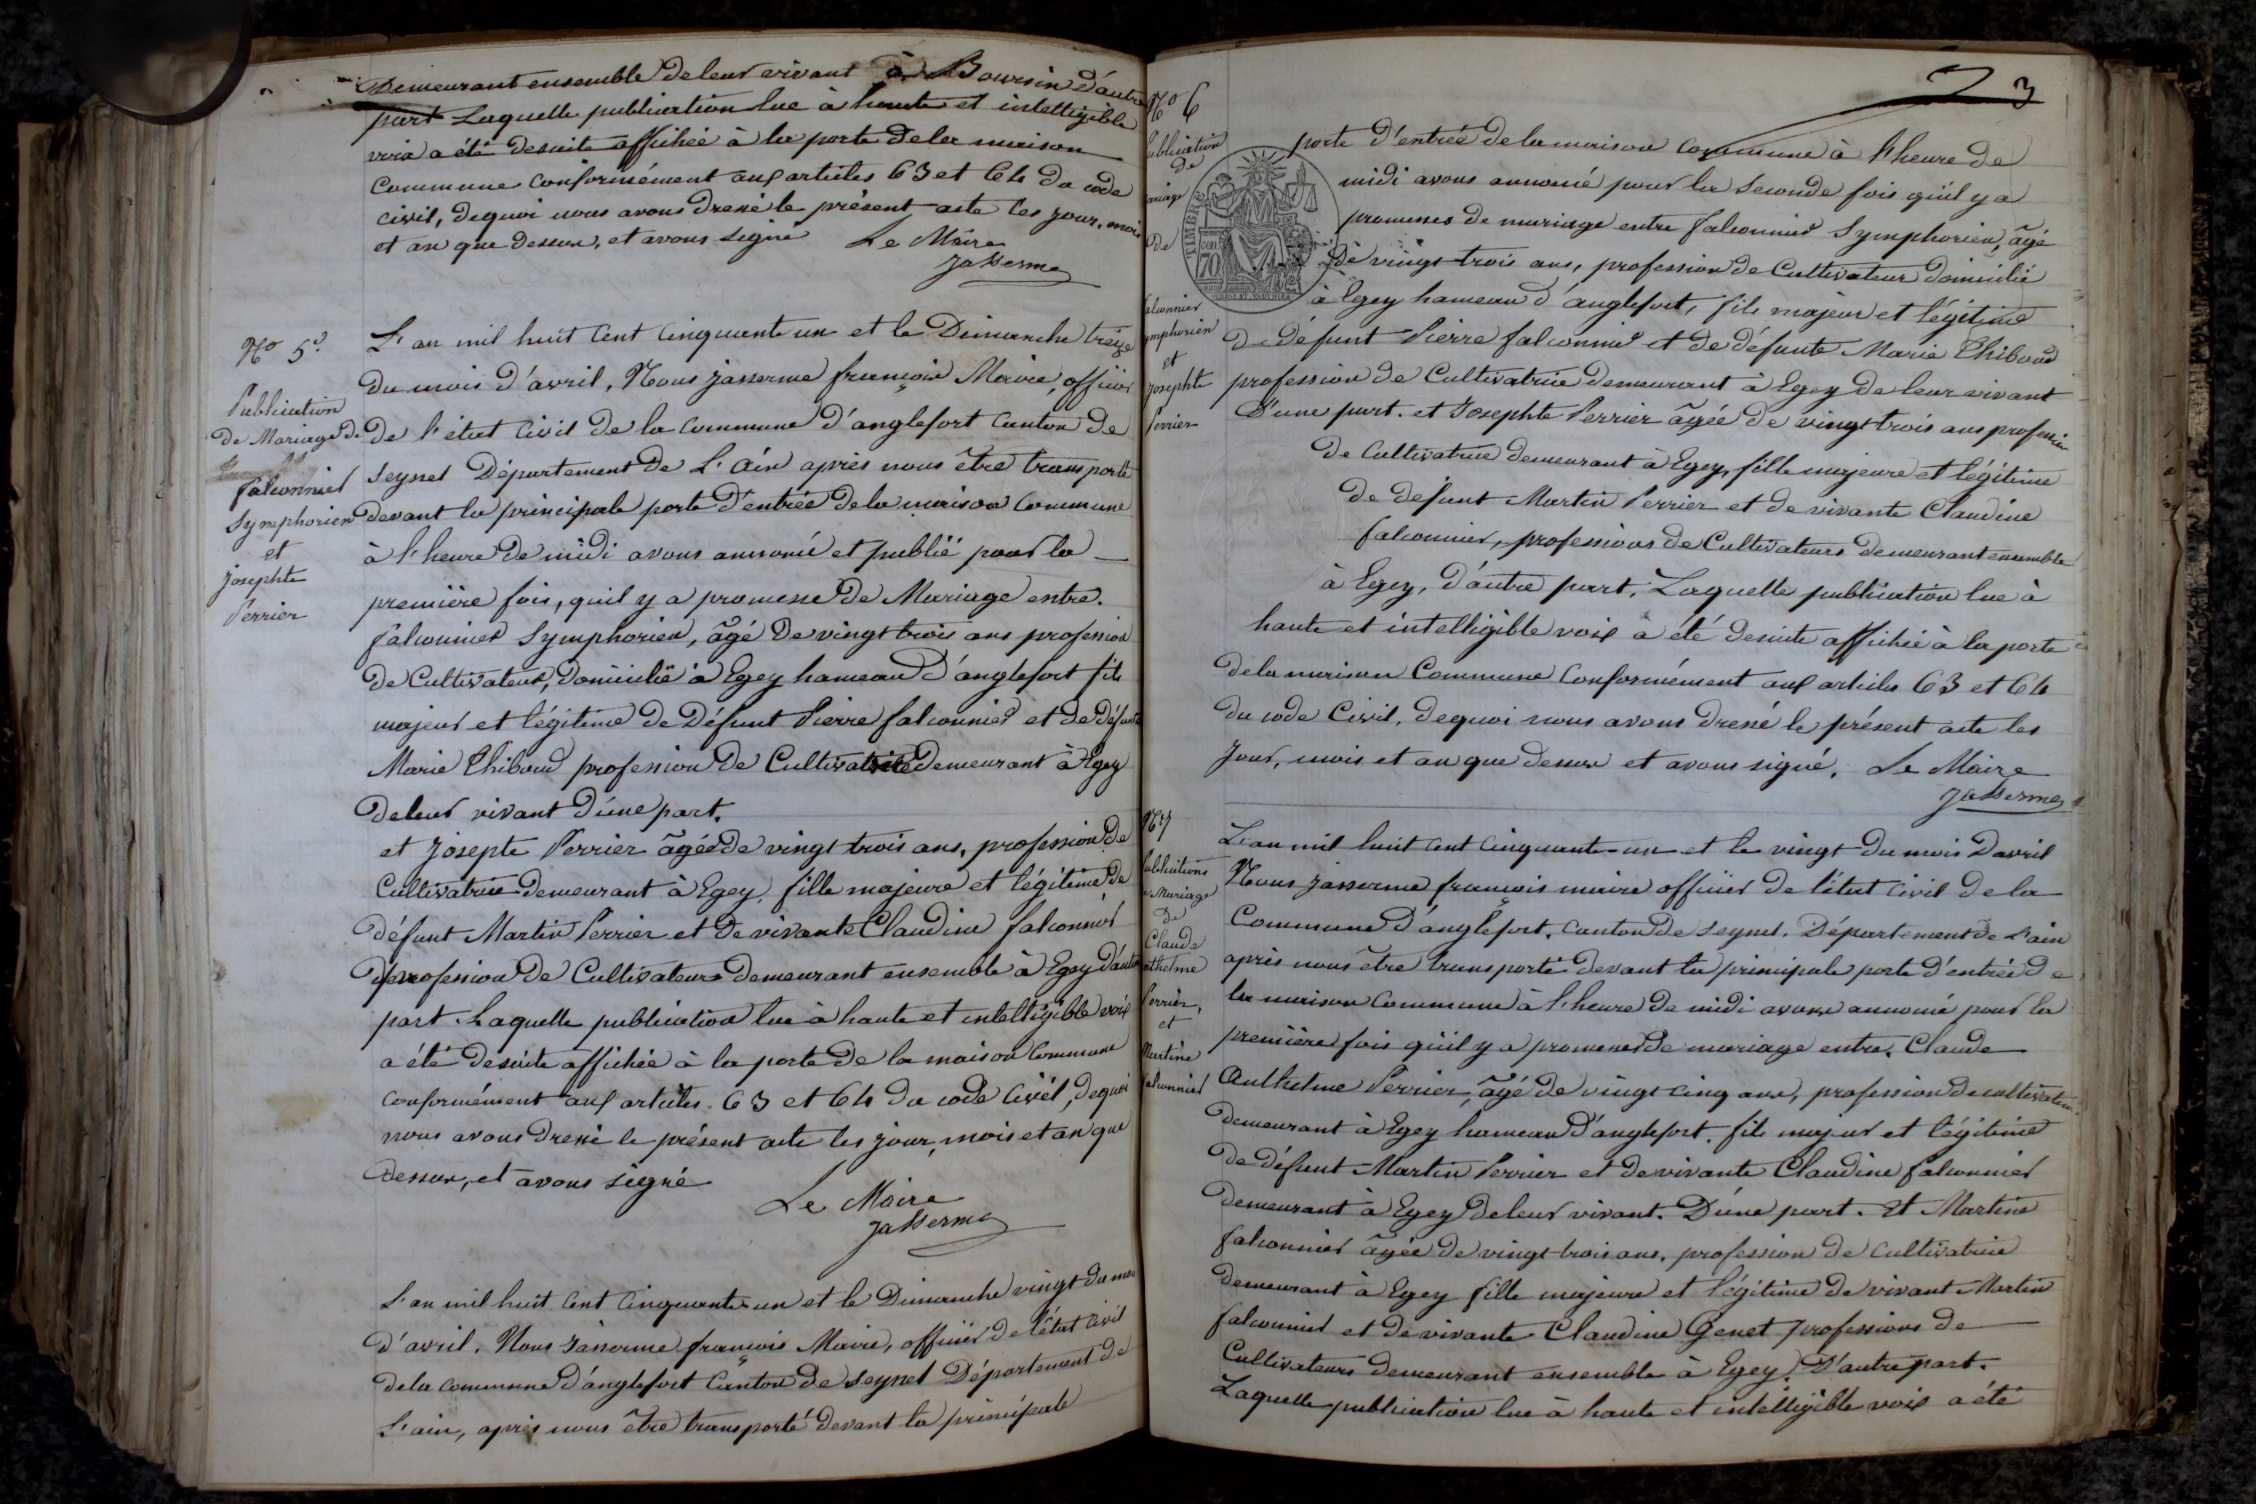 Demeurant ensemble de leur vivant à Boursin d'autre
part Laquelle publication lue à haute et intelligible
voix a été desuite affichée à la porte dela maison
Commune conformément aux articles 63 et 64 du code
civil, dequoi nous avons dressé le présent acte les jour, mois
et an que dessus, et avons signé Le Maire
Jasserme
No 5e.
Publication
de Mariage de
falconnier
Symphorien
et
Josephte
Perrier
L'an mil huit cent cinquante un et le Dimanche treize
du mois d'avril, Nous Jasserme françois Maire, officier
de l'état civil de la commune d'anglefort canton de
Seyssel Département de L'Ain après nous être transporté
devant la principale porte d'entrée dela maison commune
à l'heure de midi avons annoncé et publié pour la
première fois, quil y a promesse de Mariage entre.
falconnier Symphorien, âgé de vingt trois ans profession
de Cultivateur, domicilié à Egey hameau d'anglefort fils
majeur et légitime de Défunt Pierre falconnier et de défunte
Marie Thiboud profession de Cultivatrice demeurant à Egey
deleur vivant d'une part.
et Josepte Perrier âgée de vingt trois ans, profession de
Cultivatrice demeurant à Egey, fille majeure et légitime de
défunt Martin Perrier et de vivante Claudine falconnier
profession de Cultivateurs demeurant ensemble à Egey d'autre
part. Laquelle publication lue à haute et intelligible voix
a été desuite affichée à la porte de la maison Commune
conformément aux articles 63 et 64 du code Civil, dequoi
nous avons dressé le présent acte les jour, mois et an que
dessus, et avons signé
Le Maire
Jasserme
L'an mil huit cent cinquante un et le Dimanche vingt du mois
d'avril, Nous Jasserme françois Maire, officier de l'état civil
dela commune d'anglefort Canton de Seyssel Département de
L'ain, après nous être transporté devant la principale
3
No 6
Publication
de
mariage
de
falconnier
Symphorien
et
Josephte
Perrier
TIMBRE
70
porte d'entrée de la maison commune à l'heure de
midi avons annoncé pour la seconde fois qu'il y a
promesses de mariage entre falconnier Symphorien, âgé
de vingt-trois ans, profession de Cultivateur domicilié
à Egey hameau d'anglefort, fils majeur et légitime
de défunt Pierre falconnier et de défunte Marie Thiboud
profession de Cultivatrice demeurant à Egey de leur vivant
D'une part. et Josephte Perrier âgée de vingt trois ans profession
de Cultivatrice demeurant à Egey, fille majeure et légitime
de defunt Martin Perrier et de vivante Claudine
falconnier, professions de Cultivateurs demeurant ensemble
à Egey, d'autre part. Laquelle publication lue à
haute et intelligible voix a été desuite affichée à la porte
dela maison Commune conformément aux articles 63 et 64
du code Civil, dequoi nous avons dressé le présent acte les
jour, mois et an que dessus et avons signé. Le Maire
Jasserme
No 7
Publications
de Mariage
de
Claude
Anthelme
Perrier,
et
Martine
falconnier
L'an mil huit cent cinquante-un et le vingt du mois Davril
Nous Jasserme françois maire officier de l'état civil de la
Commune d'anglefort, canton de Seyssel. Département de L'ain
après nous être transporté devant la principale porte d'entrée de
la maison Commune à l'heure de midi avons annoncé pour la
première fois qu'il y a promesses de mariage entre. Claude
Anthelme Perrier, âgé de vingt cinq ans, profession de cultivateur
demeurant à Egey hameau d'anglefort. fils majeur et légitime
de défunt Martin Perrier et de vivante Claudine falconnier
demeurant à Egey deleur vivant. D'une part. Et Martine
falconnier âgée de vingt trois ans, profession de cultivatrice
demeurant à Egey fille majeure et légitime de vivant Martin
falconnier et de vivante Claudine Genet professions de
Cultivateurs demeurant ensemble à Egey. D'autre part.
Laquelle publication lue à haute et intelligible voix a été